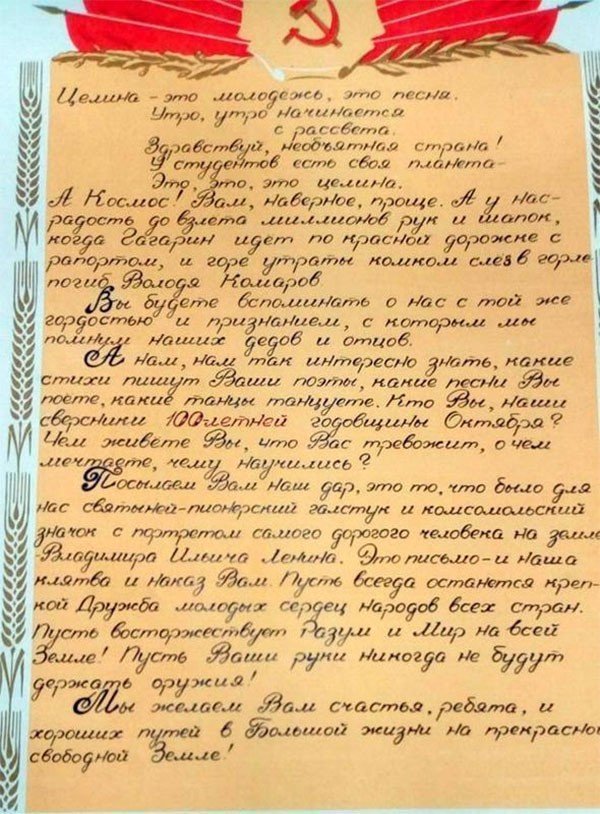 Целина - это молодежь, это песня.
Утро, утро начинается
с рассвета.
Здравствуй, необъятная страна!
У студентов есть своя планета-
Это, это, это целина.
А Космос! Вам, наверное, проще. А у нас-
радость до взлета миллионов рук и шапок,
когда Гагарин идет по красной дорожке с
рапортом, и горе утраты комком слез в горле
погиб Володя Комаров
Вы будете вспоминать о нас с той же
гордостью и признанием, с которым мы
помним наших дедов и отцов.
А нам, нам так интересно знать, какие
стихи пишут Ваши поэты, какие песни Вы
поете, какие танцы танцуете. Кто Вы, наши
сверсники 100летней годовщины Октября?
Чем живёте Вы, что Вас тревожит, о чем
мечтаете, чему научились?
Посылаем Вам наш дар, это то, что было для
нас святыней-пионерский галстук и комсомольский
значок с портретом самого дорогого человека на земле
-Владимира Ильича Ленина. Это письмо-и наша
клятва и наказ Вам. Пусть всегда останется креп-
кой Дружба молодых сердец народов всех стран.
Пусть восторжествует Разум и Мир на всей
Земле! Пусть Ваши руки никогда не будут
держать оружия!
Мы желаем Вам счастья, ребята, и
хороших путей в Большой жизни на прекрасной
свободной Земле!